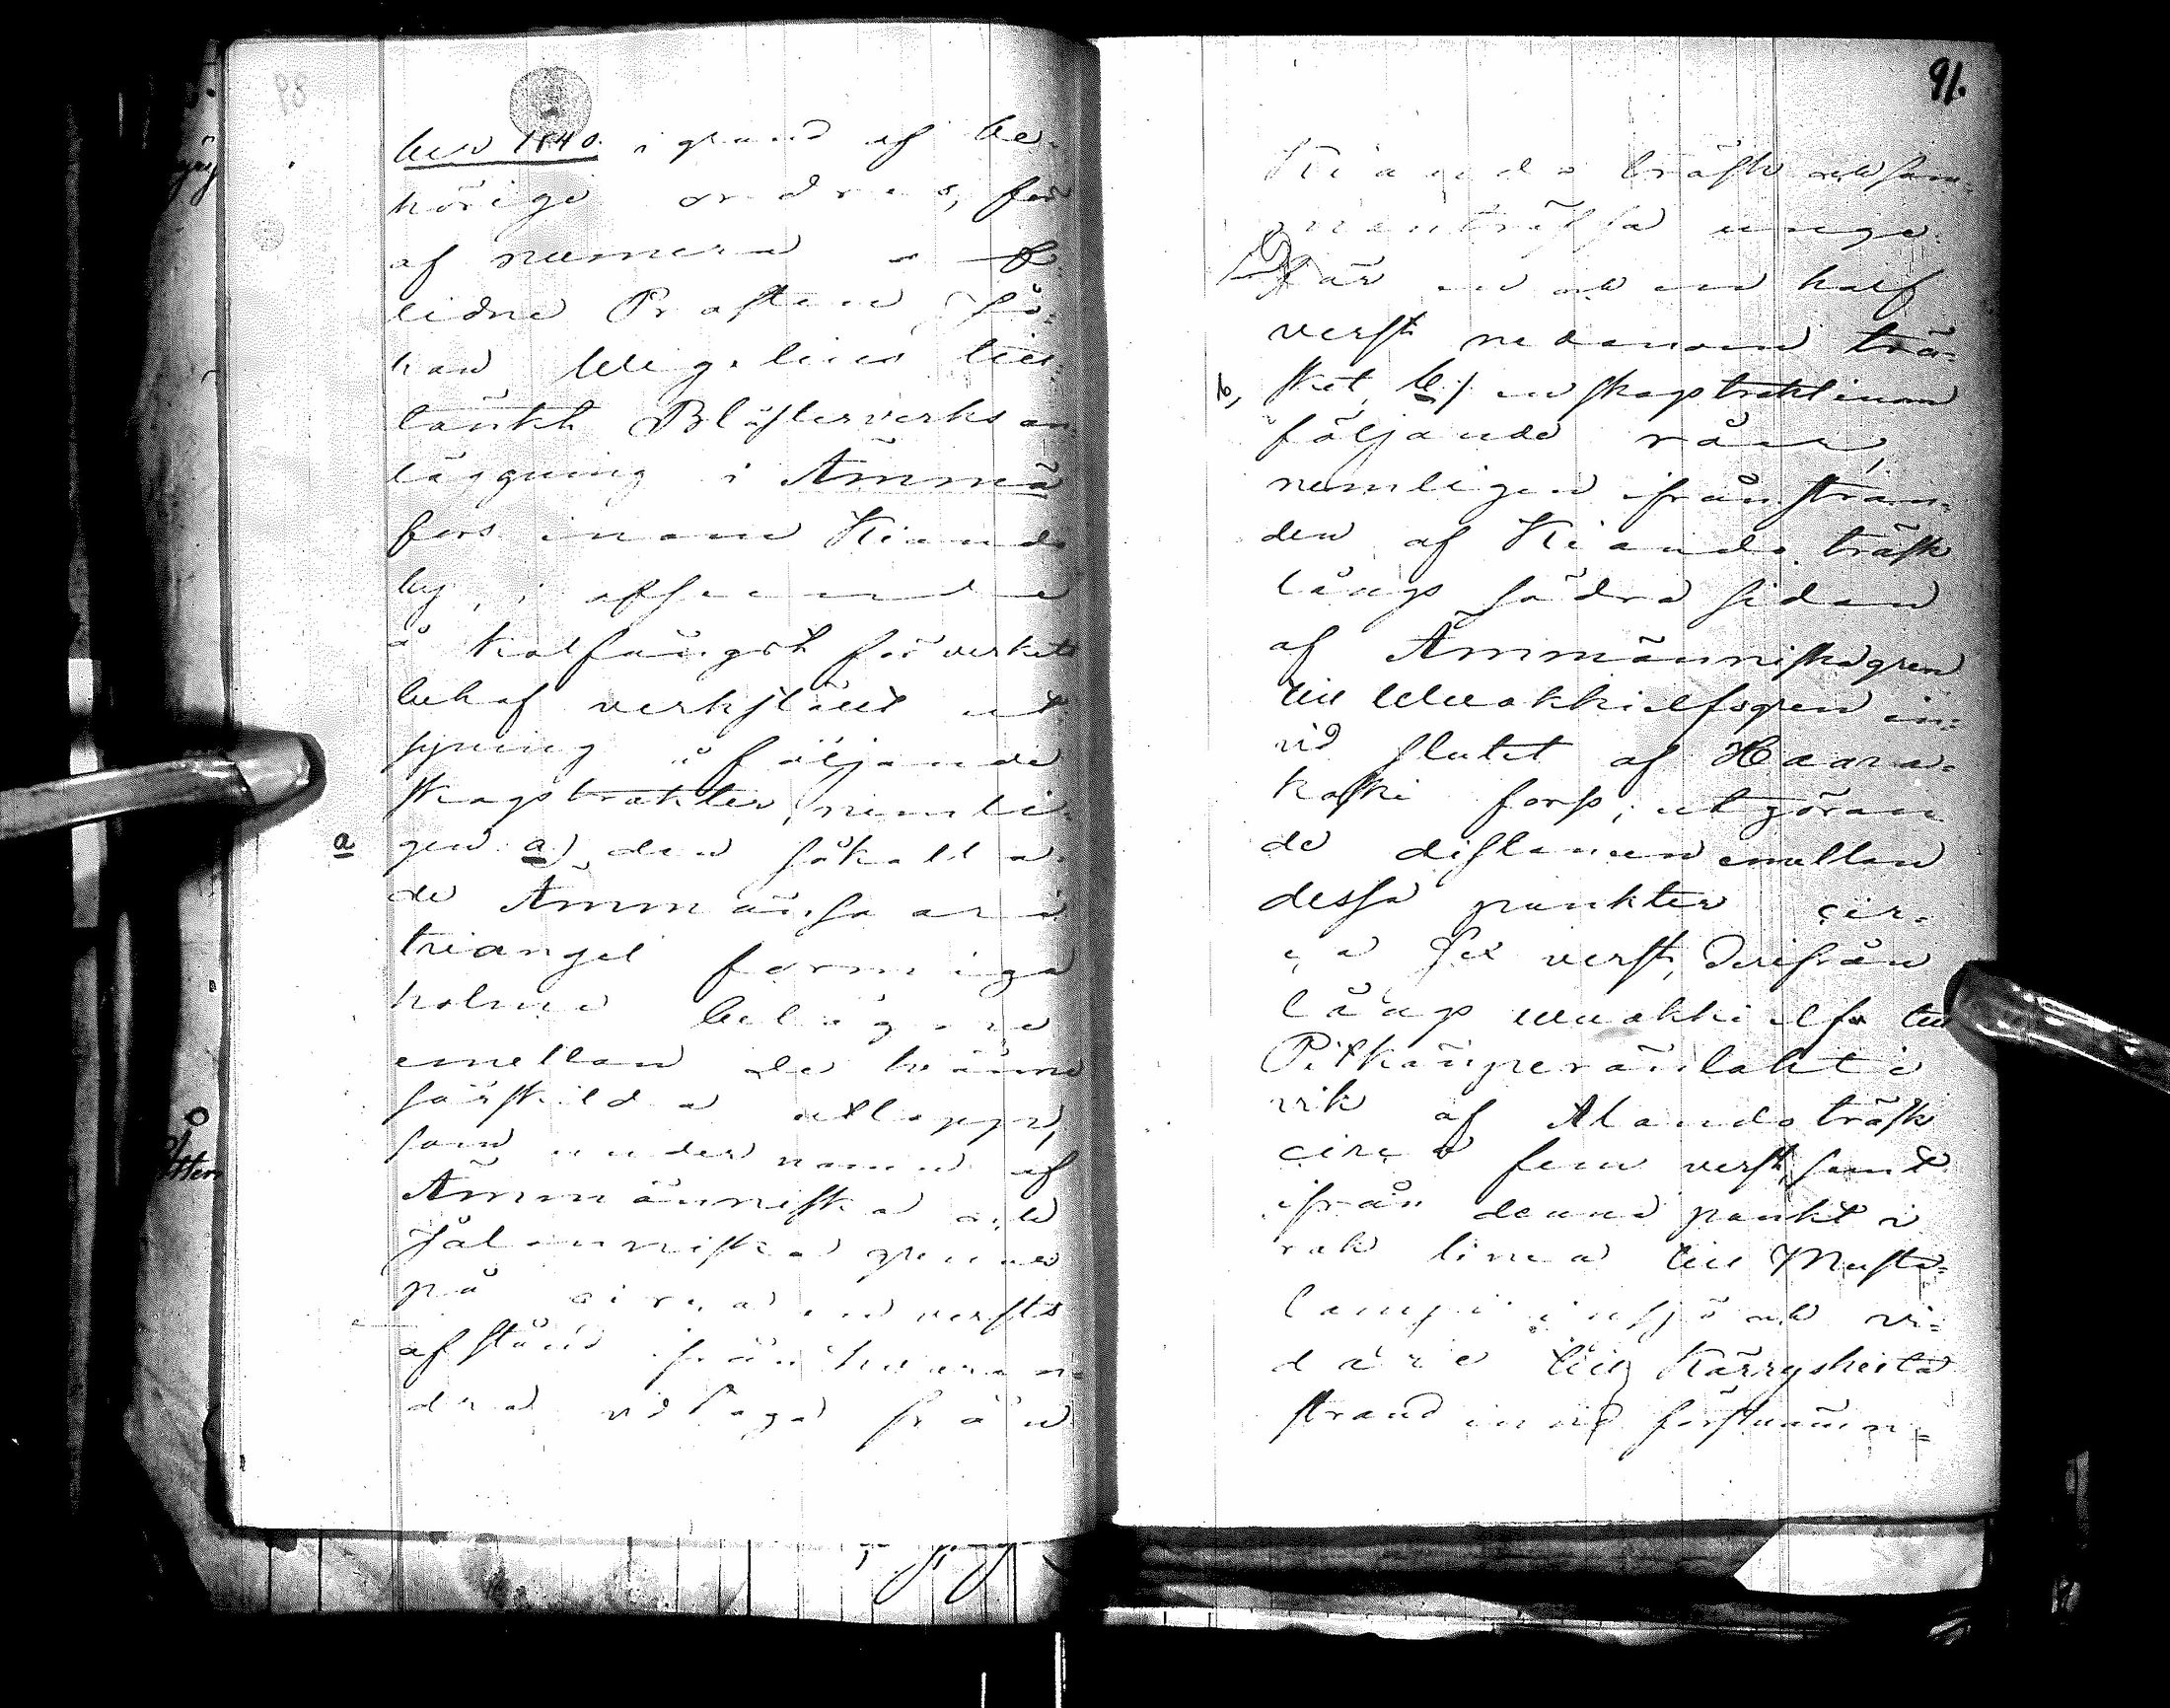 ber 1840 i grund af be-
hörige ordres, för
af numera a
lidne Prosten Jo-
han Wegelius till-
tänkt Blästerverks an-
läggning i Ämmä
fors inom Kianda
by, i afseende
å Kolfångst för verkets
behof verkstäld ut
syning å följande
skogstrakter, nemli-
a
gen a) den såkalla-
de Ämmänsaari
triangel formiga
holme belägne
emellan de tvänne
särskilda utlopp,
som under namn af
Ämmänniska och
Jalonniska grenar
på circa en versts
afstånd från hvaran-
dra utlöpa från
91.
Kianda träsk och sam-
manträffa unge-
fär en och en half
verst nedanom trä-
b,
sket, b) en skogstrakt inom
följande råer,
nemligen ifrån stran-
den af Kianda träsk
långs södra sidan
af Ämmänniska gren
till Wuokki elfsgren in-
vid slutet af Haara-
koski fors, utgöran
de distancen emellan
dessa punkter cir-
ca sex verst, derifrån
långs Wuokki elf till
Pitkänperänlahti
vik af Alanda träsk
circa fem verst, samt
ifrån denna punkt i
rak linea till Musta-
lampi insjö och vi-
dare till Kärryskeila
strand invid förstnämn-